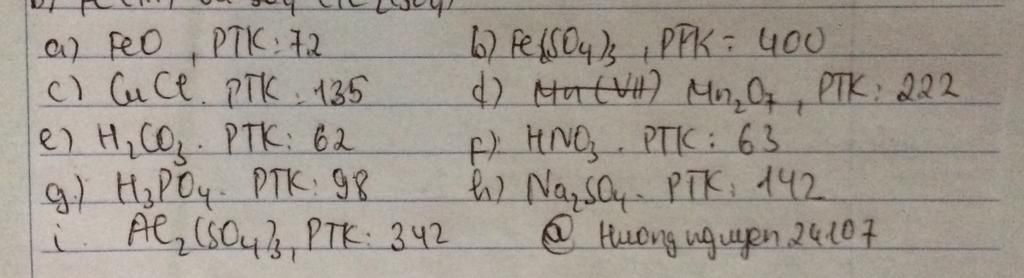 a) FeO, PTK: 72 b) Fe2(SO4)3, PPK = 400
c) CuCl. PTK: 135 d) Mn(VII) Mn2O7, PTK: 222
e) H2CO3. PTK: 62 f) HNO3. PTK: 63
g) H3PO4. PTK: 98 h) Na2SO4. PTK: 142
i. Al2(SO4)3, PTK: 342 @ Huongnguyen24107